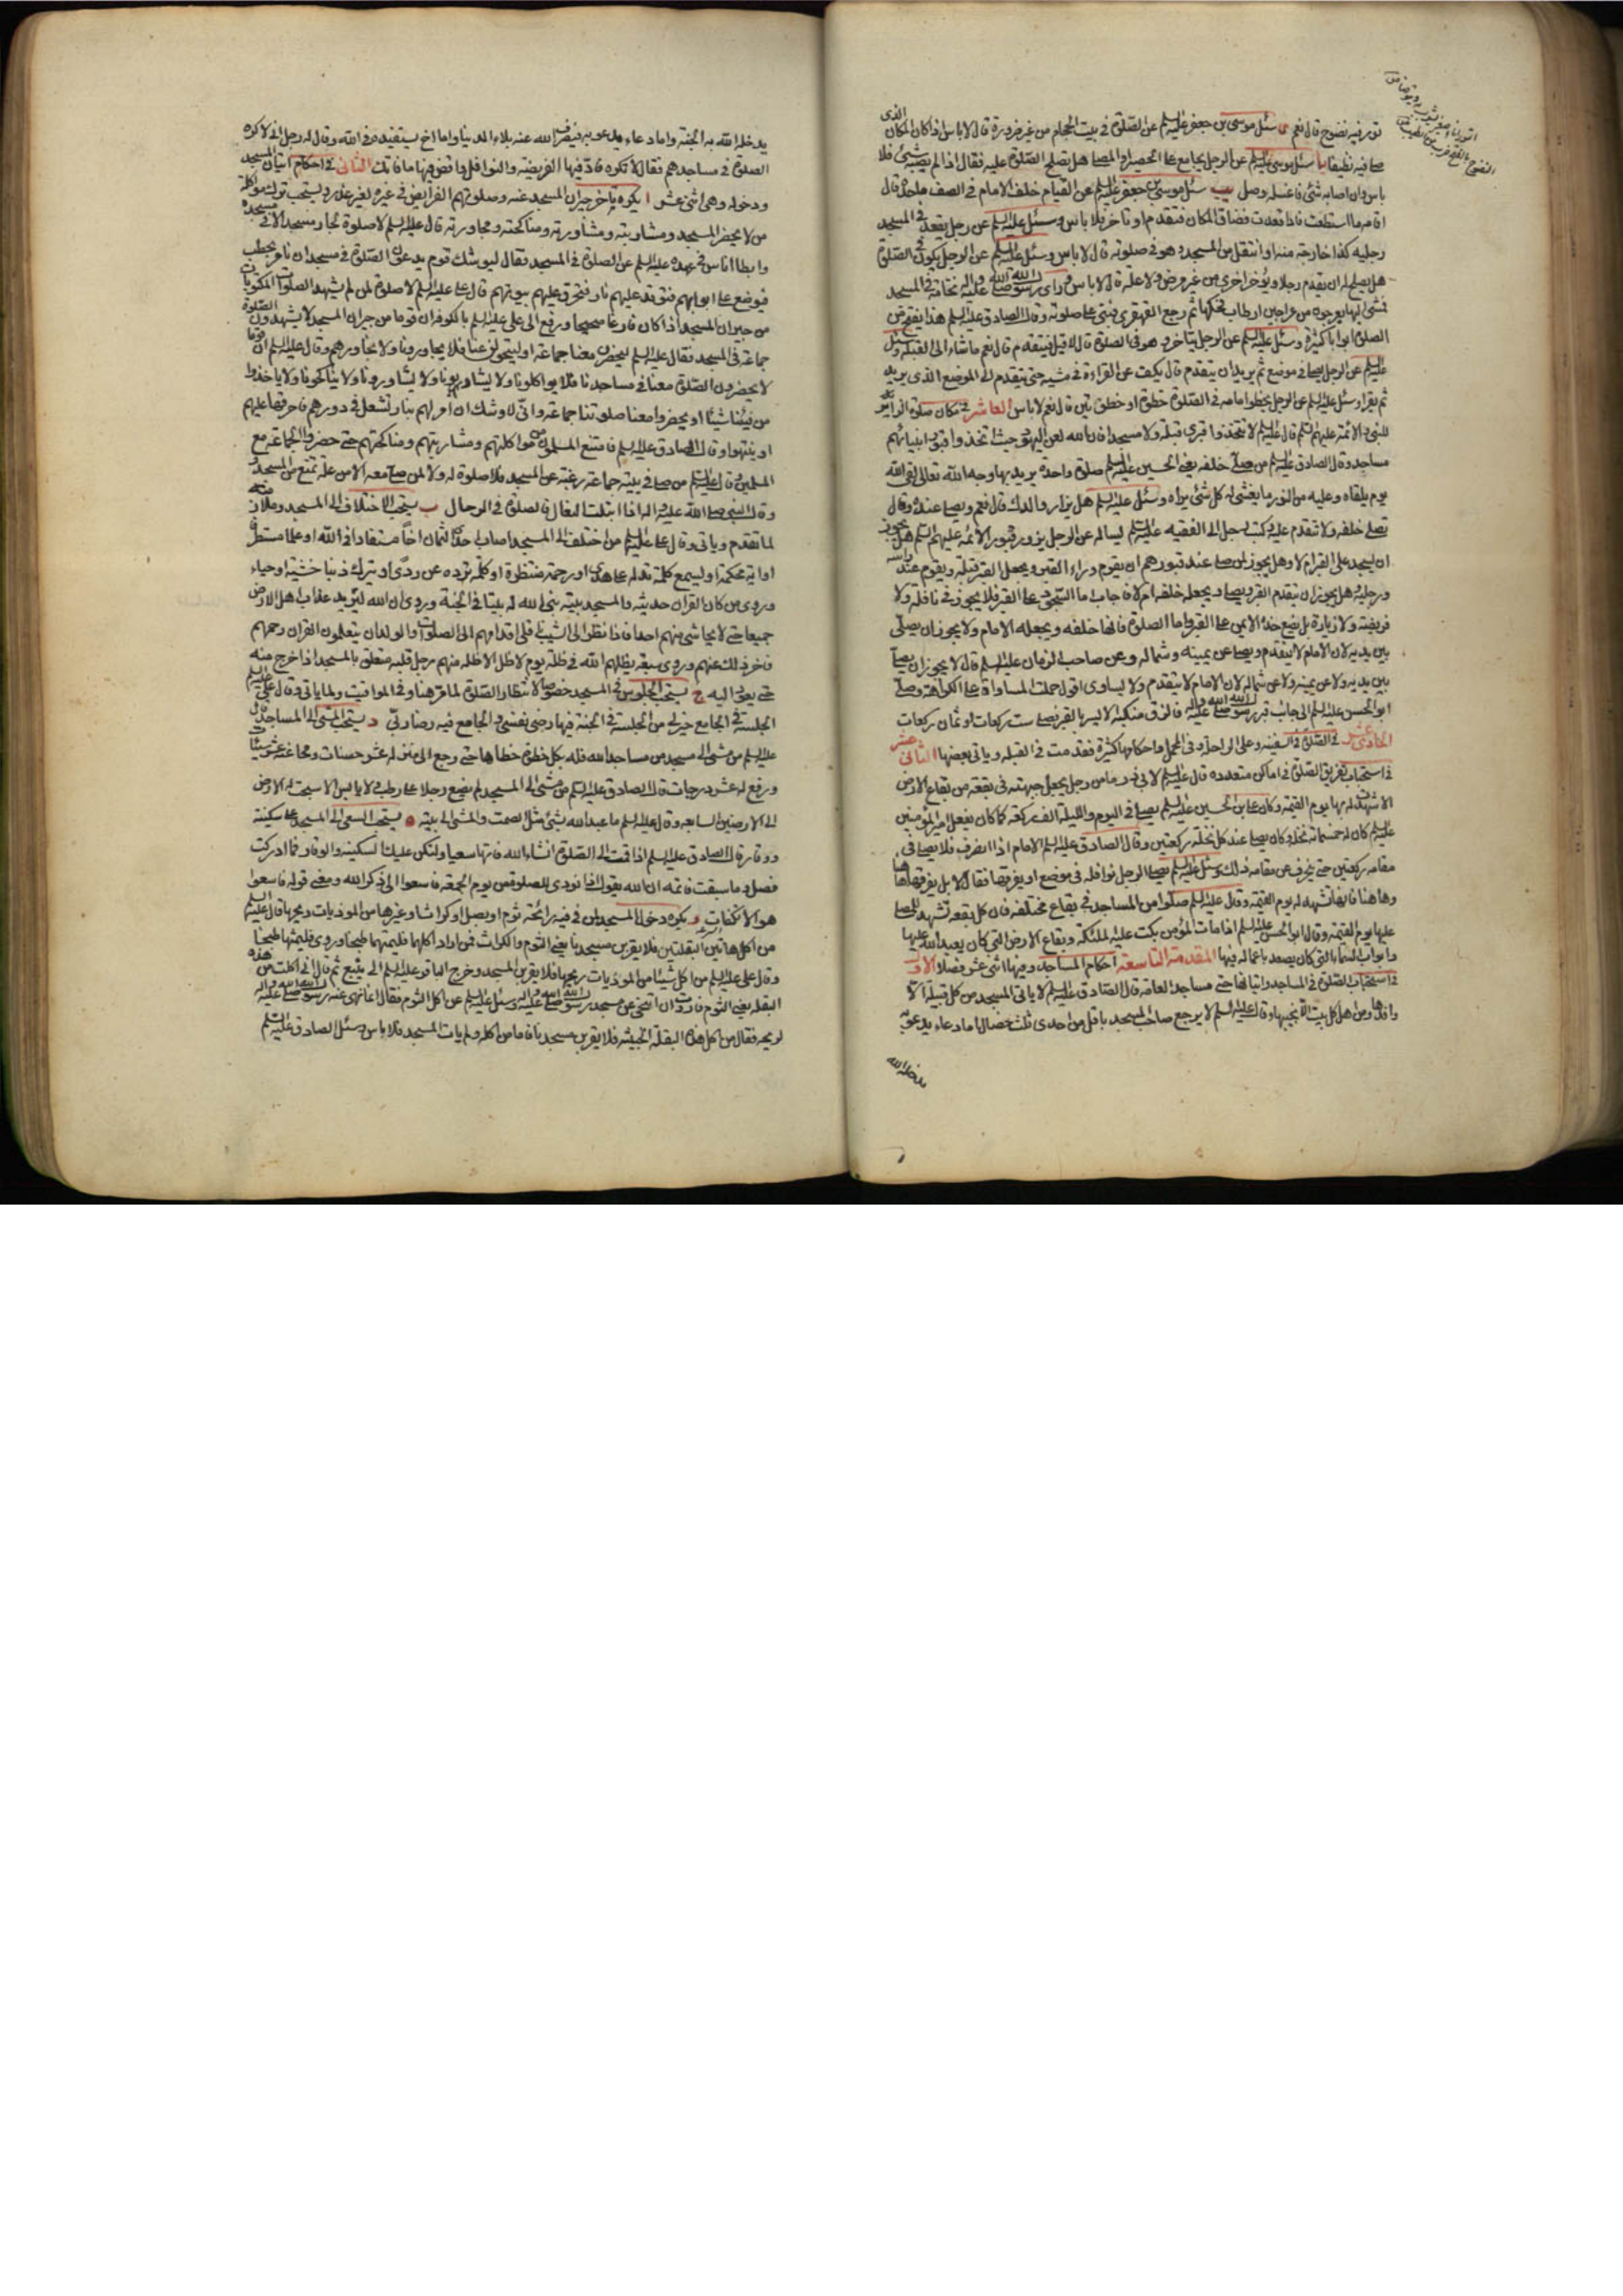 تور فيه نضوح قال نعم ى سئل موسى بن جعفر عليه السلم عن الصلوة في بيت الحجام من غير ضرورة قال لا باس اذا كان المكان الذى
صلى فيه نظيفا يا سئل موسى عليه السلم عن الرجل يجامع على الحصير او المصلى هل يصلح الصلوة عليه فقال اذا لم يصبه شئ فلا
باس وان اصابه شئ فاغسله وصل يب سئل موسى بن جعفر عليه السلم عن القيام خلف الامام في الصف ما حده قال
اقامه ما استطعت فاذا قعدت فضاق المكان فتقدم او تاخر فلا باس وسئل عليه السلم عن رجل يقعد في المسجد
رجليه كذا خارجة منه او انتقل من المسجد وهو في صلوته قال لا باس وسئل عليه السلم عن الرجل يكون في الصلوة
هل يصلح له ان يقدم رجلا ويؤخر اخرى من غير مرض ولا علة قال لا باس وراى رسول الله صلى الله عليه واله نخامة في المسجد
فمشى اليها بعرجون من عراجين ارطاب فحكها ثم رجع القهقرى فبنى على صلوته وقال الصادق عليه السلم هذا يفتح من
الصلوة ابوابا كثيرة وسئل عليه السلم عن الرجل يتاخر وهو في الصلوة قال لا قيل فيتقدم قال نعم ماشاء الى القبلة وسئل
عليه السلم عن الرجل يصلى في موضع ثم يريد ان يتقدم قال يكف عن القراءة في مشيه حتى يتقدم الى الموضع الذى يريد
ثم يقرا وسئل عليه السلم عن الرجل يخطو امامه في الصلوة خطوة او خطوتين قال نعم لا باس العاشر في مكان صلوة الزائر
للنبى والائمة عليهم السلم قال عليه السلم لا تتخذوا قبرى قبلة ولا مسجدا فان الله لعن اليهود حيث اتخذوا قبور انبيائهم
مساجد وقال الصادق عليه السلم من صلى خلفه يعنى الحسين عليه السلم صلوة واحدة يريد بها وجه الله تعالى لقى الله
يوم يلقاه وعليه من النور ما يغشى له كل شئ يراه وسئل عليه السلم هل يزار والدك قال نعم ويصلى عنده وقال
تصلى خلفه ولا تتقدم عليه وكتب رجل الى الفقيه عليه السلم يساله عن الرجل يزور قبور الائمة عليهم السلم هل يجوز
ان يسجد على القبر ام لا وهل يجوز لمن صلى عند قبورهم ان يقوم وراء القبر ويجعل القبر قبلة ويقوم عند راسه
ورجليه وهل يجوز ان يتقدم القبر ويصلى ويجعله خلفه ام لا فاجاب اما السجود على القبر فلا يجوز في نافلة ولا
فريضة ولا زيارة بل يضع خده الايمن على القبر واما الصلوة فانها خلفه ويجعله الامام ولا يجوز ان يصلى
بين يديه لان الامام لا يتقدم ويصلى عن يمينه وشماله وعن صاحب الزمان عليه السلم قال لا يجوز ان يصلى
بين يديه ولا عن يمينه ولا عن شماله لان الامام لا يتقدم ولا يساوى اقول حملت المساواة على الكراهة وصلى
ابو الحسن عليه السلم الى جانب قبر رسول الله صلى الله عليه واله فالزق منكبه الايسر بالقبر فصلى ست ركعات او ثمان ركعات
الحادى عشر في الصلوة في السفينة وعلى الراحلة وفى المحمل واحكامها كثيرة فقد مت في القبلة وياتى بعضها الثانى عشر
في استحباب تفريق الصلوة في اماكن متعددة قال عليه السلم لابى ذر ما من رجل يجعل جبهته في بقعة من بقاع الارض
الا شهدت له بها يوم القيمة وكان على بن الحسين عليه السلم يصلى في اليوم والليلة الف ركعة كما كان يفعل امير المؤمنين
عليه السلم كان له خمسمائة نخلة وكان يصلى عند كل نخلة ركعتين وقال الصادق عليه السلم الامام اذا انصرف فلا يصلى في
مقامه ركعتين حتى ينحرف عن مقامه ذلك وسئل عليه السلم يصلى الرجل نوافله في موضع او يفرقها فقال لا بل يفرقها هاهنا
وهاهنا فانها تشهد له يوم القيمة وقال عليه السلم صلوا من المساجد في بقاع مختلفة فان كل بقعة تشهد للمصلى
عليها يوم القيمة وقال ابو الحسن عليه السلم اذا مات المؤمن بكت عليه الملئكة وبقاع الارض التى كان يعبد الله عليها
وابواب السماء التى كان يصعد باعماله فيها المقدمة التاسعة احكام المساجد وفيها اثنى عشر فصلا الاول
في استحباب الصلوة في المساجد واتيانها حتى مساجد العامة قال الصادق عليه السلم لا ياتى المسجد من كل قبيلة الا
وافدها ومن اهل كل بيت الا نجيبها وقال عليه السلم لا يرجع صاحب المسجد باقل من احدى ثلث خصال اما دعاء يدعو به
يدخله الله
يدخله الله به الجنة واما دعاء يدعو به فيصرف الله عنه بلاء الدنيا واما اخ يستفيده في الله وقال له رجل انى لاكره
الصلوة في مساجدهم فقال لا تكره فاد فيها الفريضة والنوافل واقض فيها ما فاتك الثانى في احكام اتيان المسجد
ودخوله وهى اثنى عشر ا يكره تاخر جيران المسجد عنه وصلوتهم الفرايض في غيره لغير عذر ويستحب ترك مواكلة
من لا يحضر المسجد ومشاربته ومشاورته ومناكحته ومجاورته قال عليه السلم لا صلوة لجار مسجد الا في مسجده
وابطا اناس في عهده عليه السلم عن الصلوة في المسجد فقال ليوشك قوم يدعون الصلوة في مسجد ان نامر بحطب
فيوضع على ابوابهم فتوقد عليهم نار فتحرق عليهم بيوتهم قال على عليه السلم لا صلوة لمن لم يشهد الصلوات المكتوبات
من جيران المسجد اذا كان فارغا صحيحا ورفع الى على عليه السلم بالكوفة ان قوما من جيران المسجد لا يشهدون الصلوة
جماعة في المسجد فقال عليه السلم ليحضرن معنا جماعة او ليتحولن عنا فلا يجاورونا ولا نجاورهم وقال عليه السلم ان قوما
لا يحضرون الصلوة معنا في مساجدنا فلا يواكلونا ولا يشاربونا ولا يشاورونا ولا يناكحونا ولا ياخذوا
من فيئنا شيئا او يحضروا معنا صلوتنا جماعة وانى لاوشك ان امر لهم بنار تشعل في دورهم فاحرقها عليهم
او ينتهوا وقال الصادق عليه السلم فامتنع المسلمون من مواكلتهم ومشاربتهم ومناكحتهم حتى حضروا الجماعة مع
المسلمين وقال عليه السلم من صلى في بيته جماعة رغبة عن المسجد فلا صلوة له ولا لمن صلى معه الا من علة تمنع من المسجد
وقال النبى صلى الله عليه واله اذا ابتلت النعال فالصلوة في الرحال ب يستحب الاختلاف الى المسجد وملازمته
لما تقدم وياتى وقال على عليه السلم من اختلف الى المسجد اصاب احدى الثمان اخا مستفادا في الله او علما مستطرفا
او اية محكمة او يسمع كلمة تدله على هدى او رحمة منتظرة او كلمة ترده عن ردى او يترك ذنبا خشية او حياء
وروى من كان القران حديثه والمسجد بيته بنى الله له بيتا في الجنة وروى ان الله ليريد عذاب اهل الارض
جميعا حتى لا يحاشى منهم احدا فاذا نظر الى الشيب ناقلى اقدامهم الى الصلوات والولدان يتعلمون القران رحمهم
فاخر ذلك عنهم وروى سبعة يظلهم الله في ظله يوم لا ظل الا ظله منهم رجل قلبه متعلق بالمسجد اذا خرج منه
حتى يعود اليه ج يستحب الجلوس في المسجد خصوصا لانتظار الصلوة لما مر هنا وفى المواقيت ولما ياتى وقال على عليه السلم
الجلسة في الجامع خير لى من الجلسة في الجنة فيها رضى نفسى والجامع فيه رضا ربى د يستحب المشى الى المساجد قال
عليه السلم من مشى الى مسجد من مساجد الله فله بكل خطوة خطاها حتى رجع الى منزله عشر حسنات ومحا عنه عشر سيئات
ورفع له عشر درجات وقال الصادق عليه السلم من مشى الى المسجد لم يضع رجلا على رطب ولا يابس الا سبحت له الارض
الى الارضين السابعة وقال عليه السلم ما عبد الله بشئ مثل الصمت والمشى الى بيته ه يستحب السعى الى المسجد على سكينة
ووقار قال الصادق عليه السلم اذا قمت الى الصلوة انشاء الله فاتها سعيا ولتكن عليك السكينة والوقار فما ادركت
فصل وما سبقت فاتمه ان الله يقول اذا نودى للصلوة من يوم الجمعة فاسعوا الى ذكر الله ومعنى قوله فاسعوا
هو الانكفات و يكره دخول المسجد لمن في فيه رائحة ثوم او بصل او كراث او غيرها من الموذيات وريحها قال عليه السلم
من اكل هاتين البقلتين فلا يقربن مسجدنا يعنى الثوم والكراث فمن اراد اكلهما فليمتهما طبخا وروى فليمثها طبخا
وقال على عليه السلم من اكل شيئا من الموذيات ريحها فلا يقربن المسجد وخرج الباقر عليه السلم الى ينبع ثم قال انى اكلت من هذه
البقلة يعنى الثوم فاردت ان اتنحى عن مسجد رسول الله صلى الله عليه واله وسئل عليه السلم عن اكل الثوم فقال انما نهى عنه رسول الله صلى الله عليه واله
لريحه فقال من اكل هذه البقلة الخبيثة فلا يقرب مسجدنا فاما من اكله ولم يات المسجد فلا باس وسئل الصادق عليه السلم